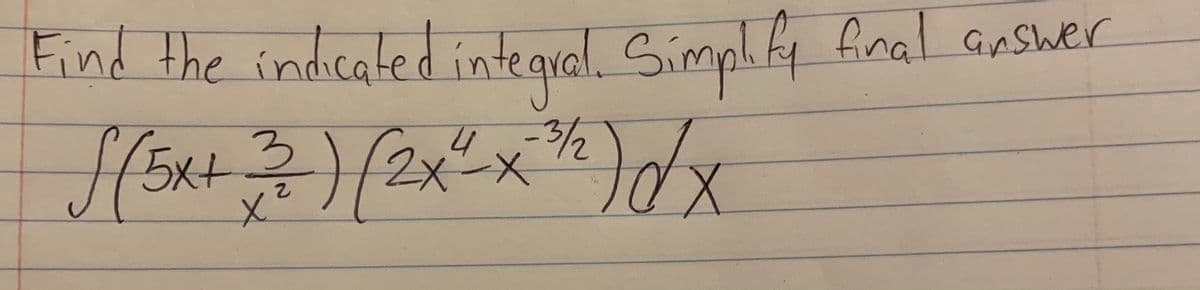 Find the indicated integral. Simplify final answer
∫(5x+ 3/x²)(2x⁴-x^(-3/2))dx